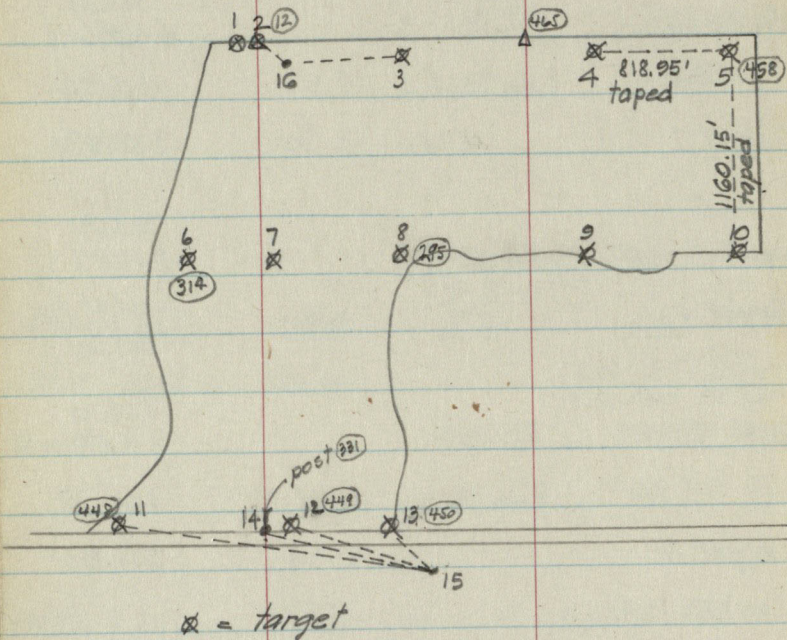 1 2 (12) (465)
16 3 4 818.95' 5 (458)
taped
1160.15'
taped
6 7 8 (295) 9 10
(314)
post (331)
(448) 11 14 12 (449) 13 (450)
15
= target